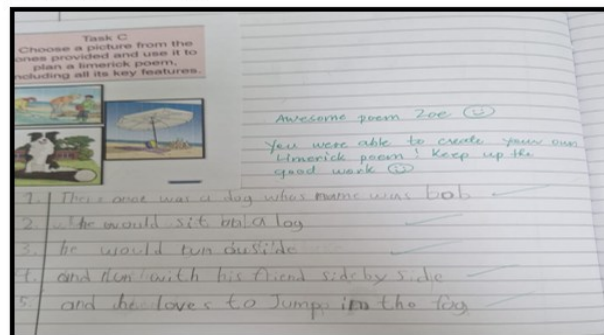 Task C
Choose a picture from the
ones provided and use it to
plan a limerick poem,
including all its key features.
Awesome poem Zoe
You were able to create your own
Limerick poem! Keep up the
good work
1. There once was a dog whos name was bob
2. he would sit on a log
3. he would run outside
4. and run with his friend side by side
5. and he loves to Jump in the fog